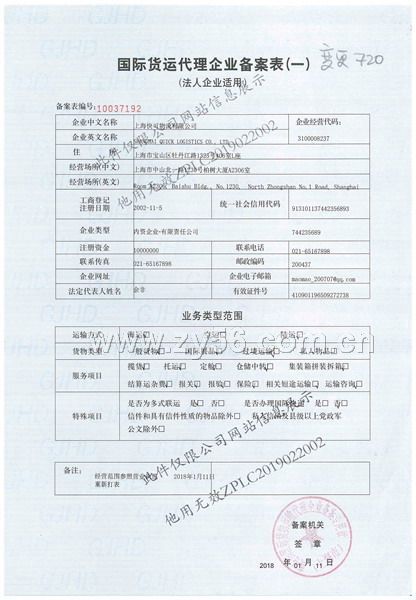 国际货运代理企业备案表(一) 变更 720
(法人企业适用)
备案表编号:10037192
企业中文名称 上海快可物流有限公司 企业经营代码:
企业英文名称 SHANGHAI QUICK LOGISTICS CO., LTD. 3100008237
住 所 上海市宝山区牡丹江路1325号 座
经营场所(中文) 上海市中山北一路1230号柏树大厦A2306室
经营场所(英文) Room Baishu Bldg., No.1230, North Zhongshan No.1 Road, Shanghai
工商登记注册日期 2002-11-5 统一社会信用代码 913101137442356893
企业类型 内资企业-有限责任公司 744235689
注册资金 10000000 联系电话 021-65167898
联系传真 021-65167898 邮政编码 200437
企业网址 企业电子邮箱 maomao_200707@qq.com
法定代表人姓名 余非 有效证件号 410901196509272738
业务类型范围
运输方式 海运 空运 陆运
货物类型 一般货物 国际展品 过境运输 私人物品
服务项目 揽货 托运 定舱 仓储中转 集装箱拼装拆箱
结算运杂费 报关 报验 保险 相关短途运输 运输咨询
特殊项目 是否为多式联运 是 否 是否办理国际快递 是 否
信件和具有信件性质的物品除外 私人信函及县级以上党政军
公文除外
备注: 经营范围参照营业执照 2018年1月11日
重新打表
备案机关
签 章
2018 年 01 月 11 日
此件仅限公司网站信息展示
他用无效ZPLC2019022002
此件仅限公司网站信息展示
他用无效ZPLC2019022002
www.zya56.com.cn